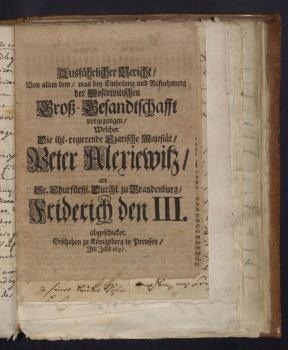 Ausführlicher Bericht /
Von allem dem / was bey Einholung und Aufnehmung
der Moscowitischen
Groß-Gesandtschafft
vorgegangen /
Welcher
Die itzt-regierende Czarische Majestät /
Peter Alexiewitz /
an
Se. Churfürstl. Durchl. zu Brandenburg /
Friderich den III.
abgeschicket.
Geschehen zu Königsberg in Preussen /
Im Jahr 1697.